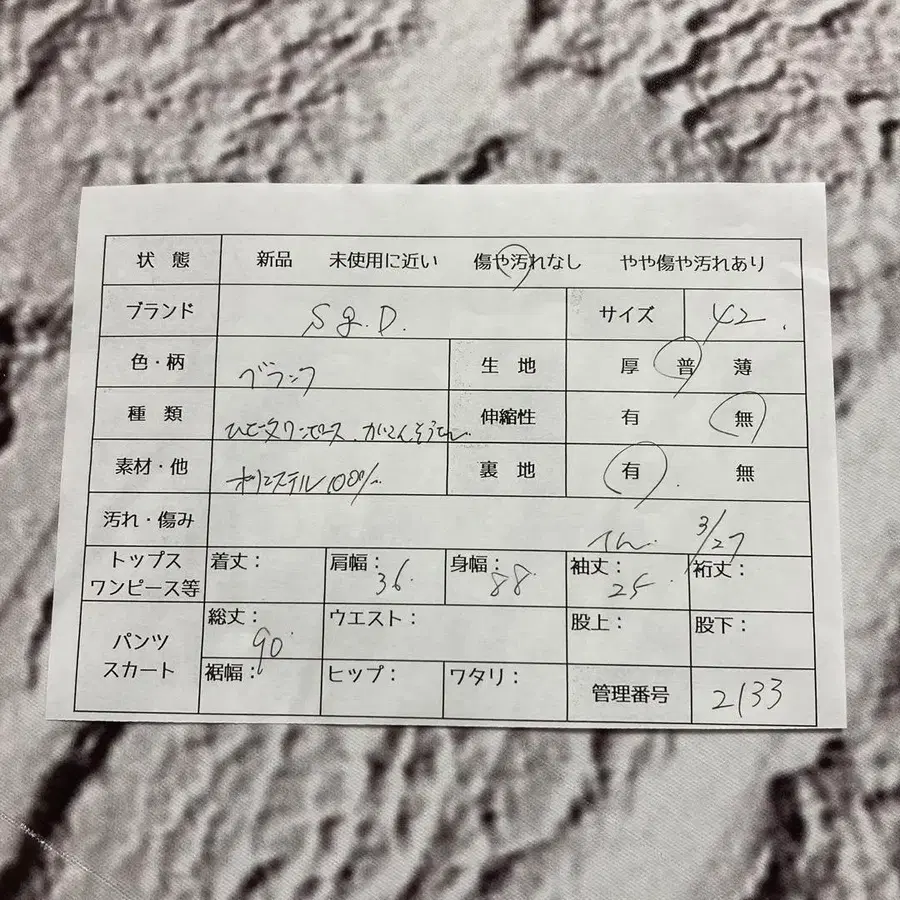 状 態 新品 未使用に近い 傷や汚れなし やや傷や汚れあり
ブランド S g. D. サイズ 42.
色・柄 ブランク 生 地 厚 普 薄
種 類 伸縮性 有 無
素材・他 ポリエステル100% 裏 地 有 無
汚れ・傷み 3/27
トップス
ワンピース等 着丈： 肩幅：36 身幅：88 袖丈：25 裄丈：
パンツ
スカート 総丈：90 ウエスト： 股上： 股下：
裾幅： ヒップ： ワタリ： 管理番号 2133